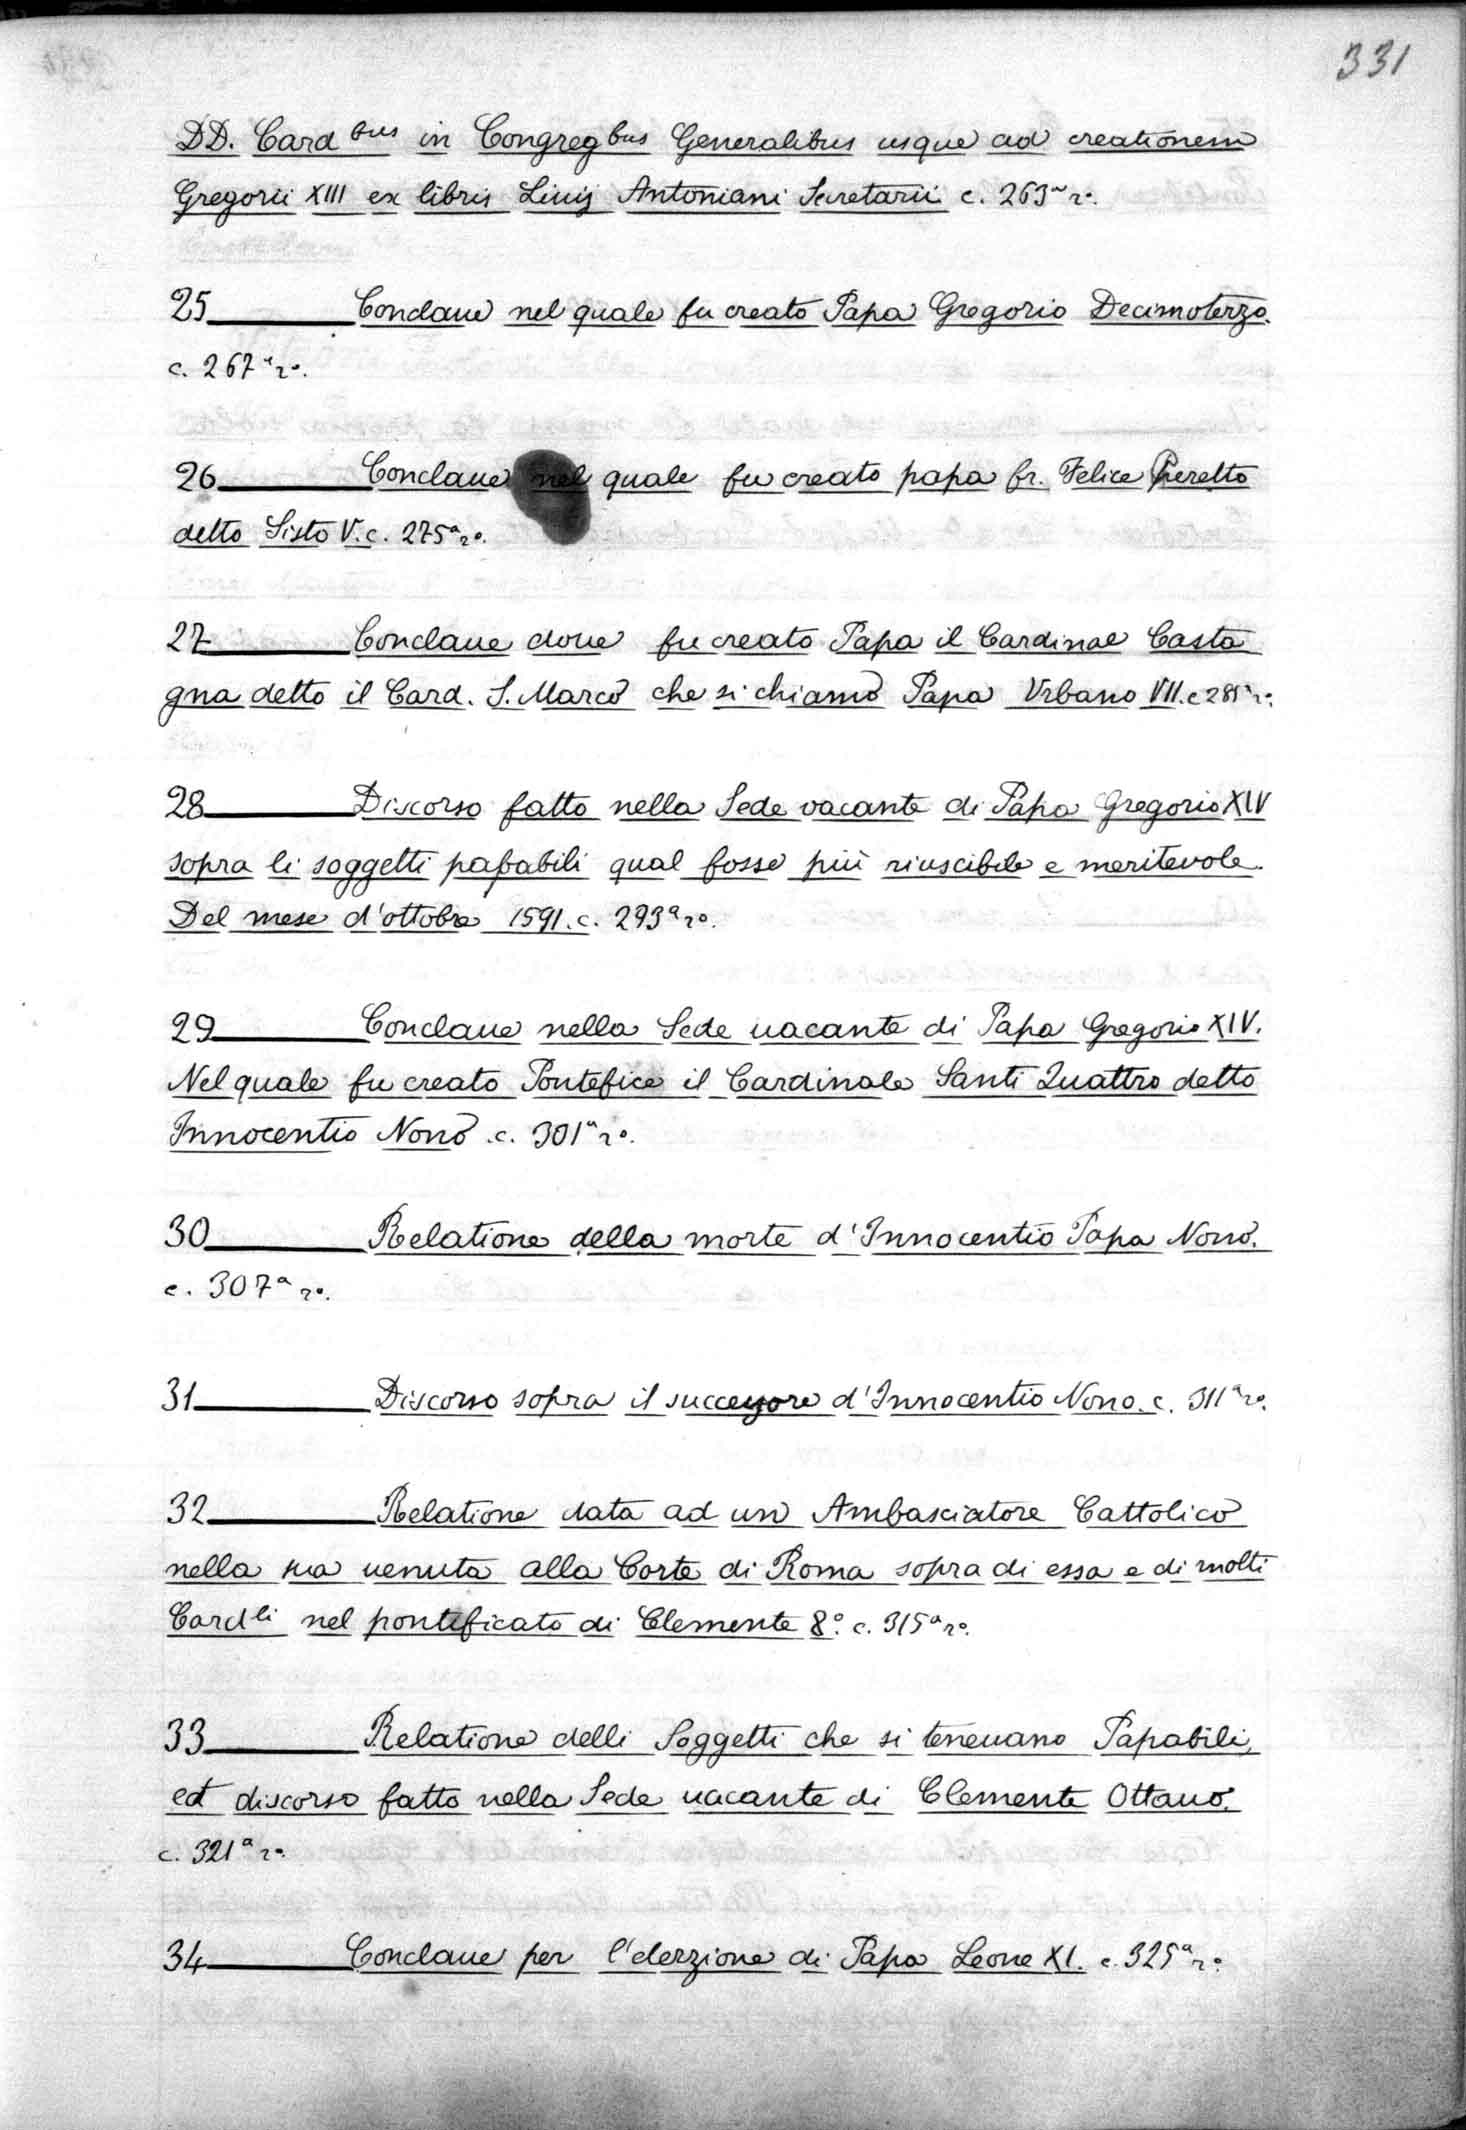 331
DD. Card bus in Congreg bus Generalibus usque ad creationem
Gregorii XIII ex libris Livij Antoniani Secretarii c. 263ª rº.
25 Conclaue nel quale fu creato Papa Gregorio Decimoterzo.
c. 267ª rº.
26 Conclaue nel quale fu creato papa fr. Felice Peretto
detto Sisto V. c. 275ª rº.
27 Conclaue doue fu creato Papa il Cardinal Casta
gna detto il Card. S. Marco che si chiamò Papa Vrbano VII. c 281ª rº.
28 Discorso fatto nella Sede vacante di Papa Gregorio XIV
sopra li soggetti papabili qual fosse più riuscibile e meritevole.
Del mese d'ottobre 1591. c. 293ª rº.
29 Conclaue nella Sede uacante di Papa Gregorio XIV.
Nel quale fu creato Pontefice il Cardinale Santi Quattro detto
Innocentio Nono c. 301ª rº.
30 Relatione della morte d'Innocentio Papa Nono.
c. 307ª rº.
31 Discorso sopra il successore d'Innocentio Nono. c. 311ª rº.
32 Relatione data ad un Ambasciatore Cattolico
nella sua uenuta alla Corte di Roma sopra di essa e di molti
Cardli nel pontificato di Clemente 8º. c. 315ª rº.
33 Relatione delli Soggetti che si teneuano Papabili,
et discorso fatto nella Sede uacante di Clemente Ottauo.
c. 321ª rº.
34 Conclaue per l'elezzione di Papa Leone XI. c. 325ª rº.